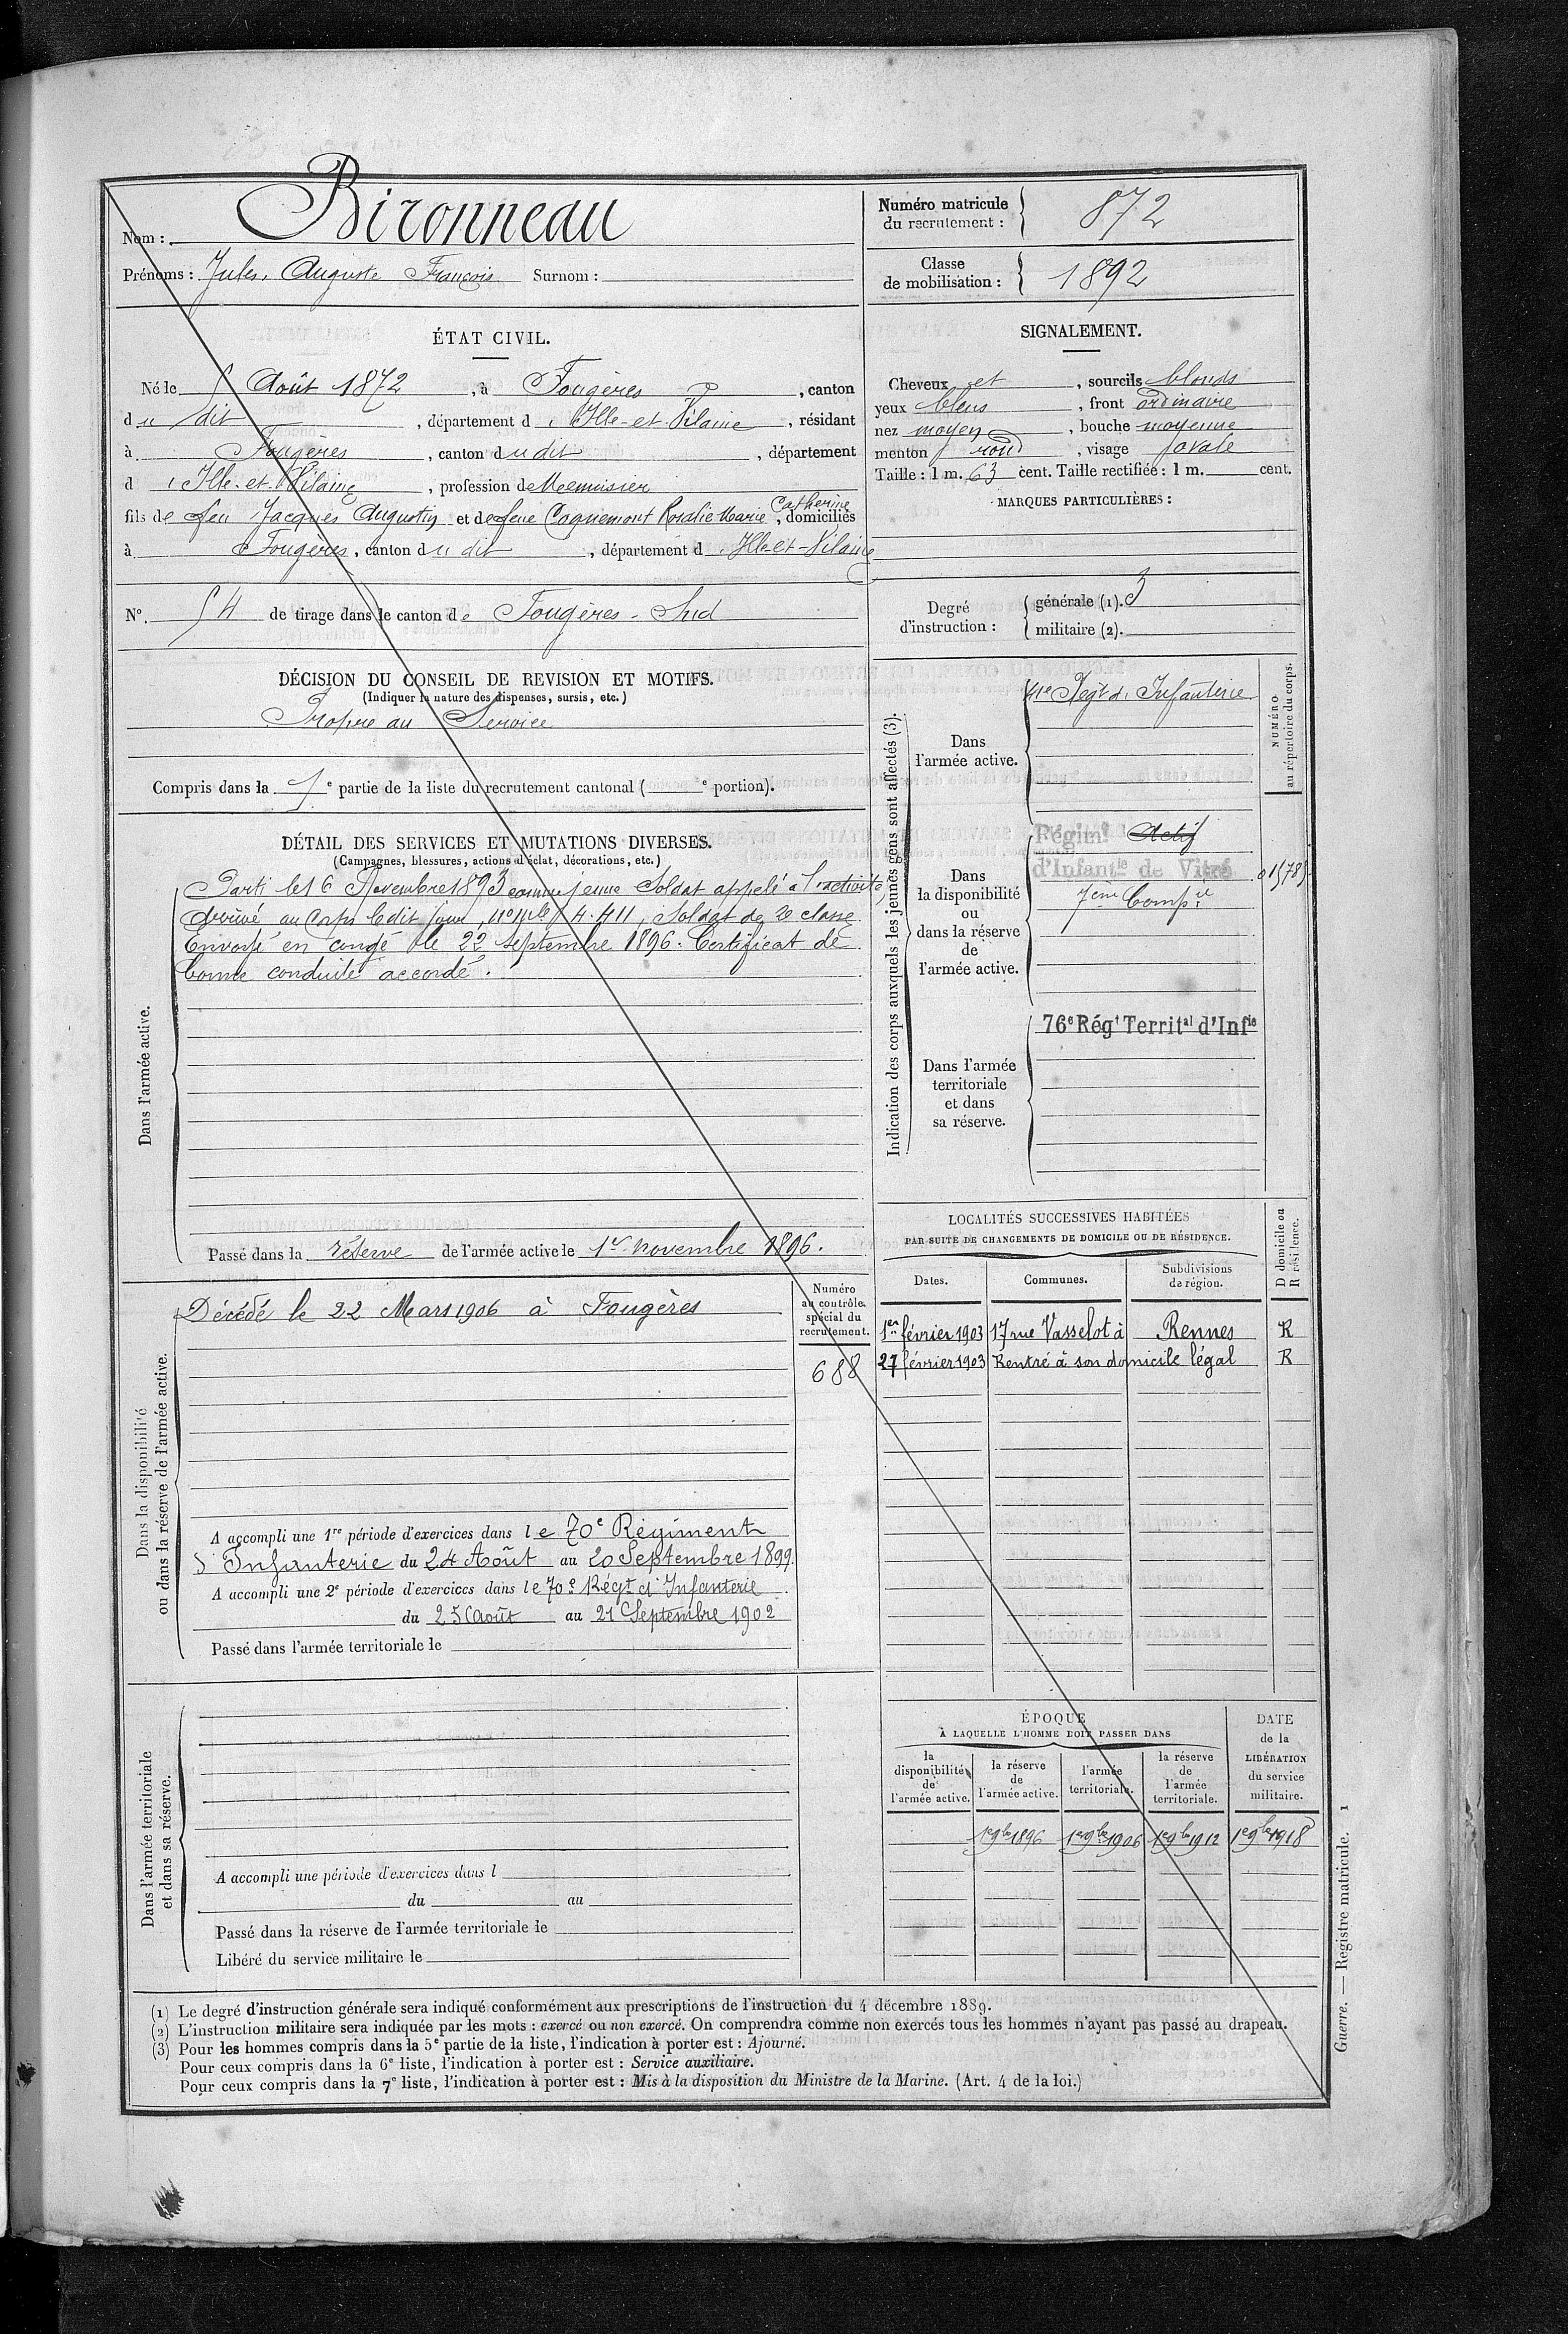 Nom : Bironneau
Prénoms : Jules Auguste François Surnom :
Numéro matricule du recrutement : 872
Classe de mobilisation : 1892
ÉTAT CIVIL.
Né le 5 Août 1872, à Fougères, canton
du dit, département d'Ille-et-Vilaine, résidant
à Fougères, canton du dit, département
d'Ille-et-Vilaine, profession de Menuisier
fils de feu Jacques Augustin et de feue Coquemont Rosalie Marie Catherine, domiciliés
à Fougères, canton du dit, département d'Ille-et-Vilaine
N° 54 de tirage dans le canton de Fougères-Sud
SIGNALEMENT.
Cheveux et, sourcils blonds
yeux bleus, front ordinaire
nez moyen, bouche moyenne
menton rond, visage ovale
Taille : 1 m. 63 cent. Taille rectifiée : 1 m. cent.
MARQUES PARTICULIÈRES :
Degré d'instruction : générale (1). 3
militaire (2).
DÉCISION DU CONSEIL DE REVISION ET MOTIFS.
(Indiquer la nature des dispenses, sursis, etc.)
Propre au Service
Compris dans la 1e partie de la liste du recrutement cantonal ( e portion).
DÉTAIL DES SERVICES ET MUTATIONS DIVERSES.
(Campagnes, blessures, actions d'éclat, décorations, etc.)
Dans l'armée active.
Parti le 16 Novembre 1893 comme jeune Soldat appelé à l'activité,
Arrivé au Corps le dit jour, no mle 4.411, Soldat de 2e classe.
Envoyé en congé le 22 septembre 1896. Certificat de
bonne conduite accordé.
Passé dans la réserve de l'armée active le 1er novembre 1896.
Indication des corps auxquels les jeunes gens sont affectés (3).
NUMÉRO au répertoire du corps.
Dans l'armée active.
41e Regt d'Infanterie
Dans la disponibilité ou dans la réserve de l'armée active.
Régimt Actif
d'Infantie de Vitré
7eme Compie
Dans l'armée territoriale et dans sa réserve.
76e Régt Territal d'Infie
LOCALITÉS SUCCESSIVES HABITÉES
PAR SUITE DE CHANGEMENTS DE DOMICILE OU DE RÉSIDENCE.
Dates. Communes. Subdivisions de région. D domicile ou R résidence.
1er février 1903 17 rue Vasselot à Rennes R
27 février 1903 Rentré à son domicile légal R
Dans la disponibilité
ou dans la réserve de l'armée active.
Numéro au contrôle spécial du recrutement.
688
Décédé le 22 Mars 1906 à Fougères
A accompli une 1re période d'exercices dans le 70e Régiment
d'Infanterie du 24 Août au 20 Septembre 1899.
A accompli une 2e période d'exercices dans le 70e Régt d'Infanterie
du 25 Août au 21 Septembre 1902
Passé dans l'armée territoriale le
Dans l'armée territoriale
et dans sa réserve.
A accompli une période d'exercices dans l
du au
Passé dans la réserve de l'armée territoriale le
Libéré du service militaire le
ÉPOQUE
À LAQUELLE L'HOMME DOIT PASSER DANS
la disponibilité de l'armée active.
la réserve de l'armée active.
l'armée territoriale.
la réserve de l'armée territoriale.
DATE de la LIBÉRATION du service militaire.
1er 9bre 1896 1er 9bre 1906 1er 9bre 1912 1er 9bre 1918
(1) Le degré d'instruction générale sera indiqué conformément aux prescriptions de l'instruction du 4 décembre 1889.
(2) L'instruction militaire sera indiquée par les mots : exercé ou non exercé. On comprendra comme non exercés tous les hommes n'ayant pas passé au drapeau.
(3) Pour les hommes compris dans la 5e partie de la liste, l'indication à porter est : Ajourné.
Pour ceux compris dans la 6e liste, l'indication à porter est : Service auxiliaire.
Pour ceux compris dans la 7e liste, l'indication à porter est : Mis à la disposition du Ministre de la Marine. (Art. 4 de la loi.)
Guerre. — Registre matricule. 1